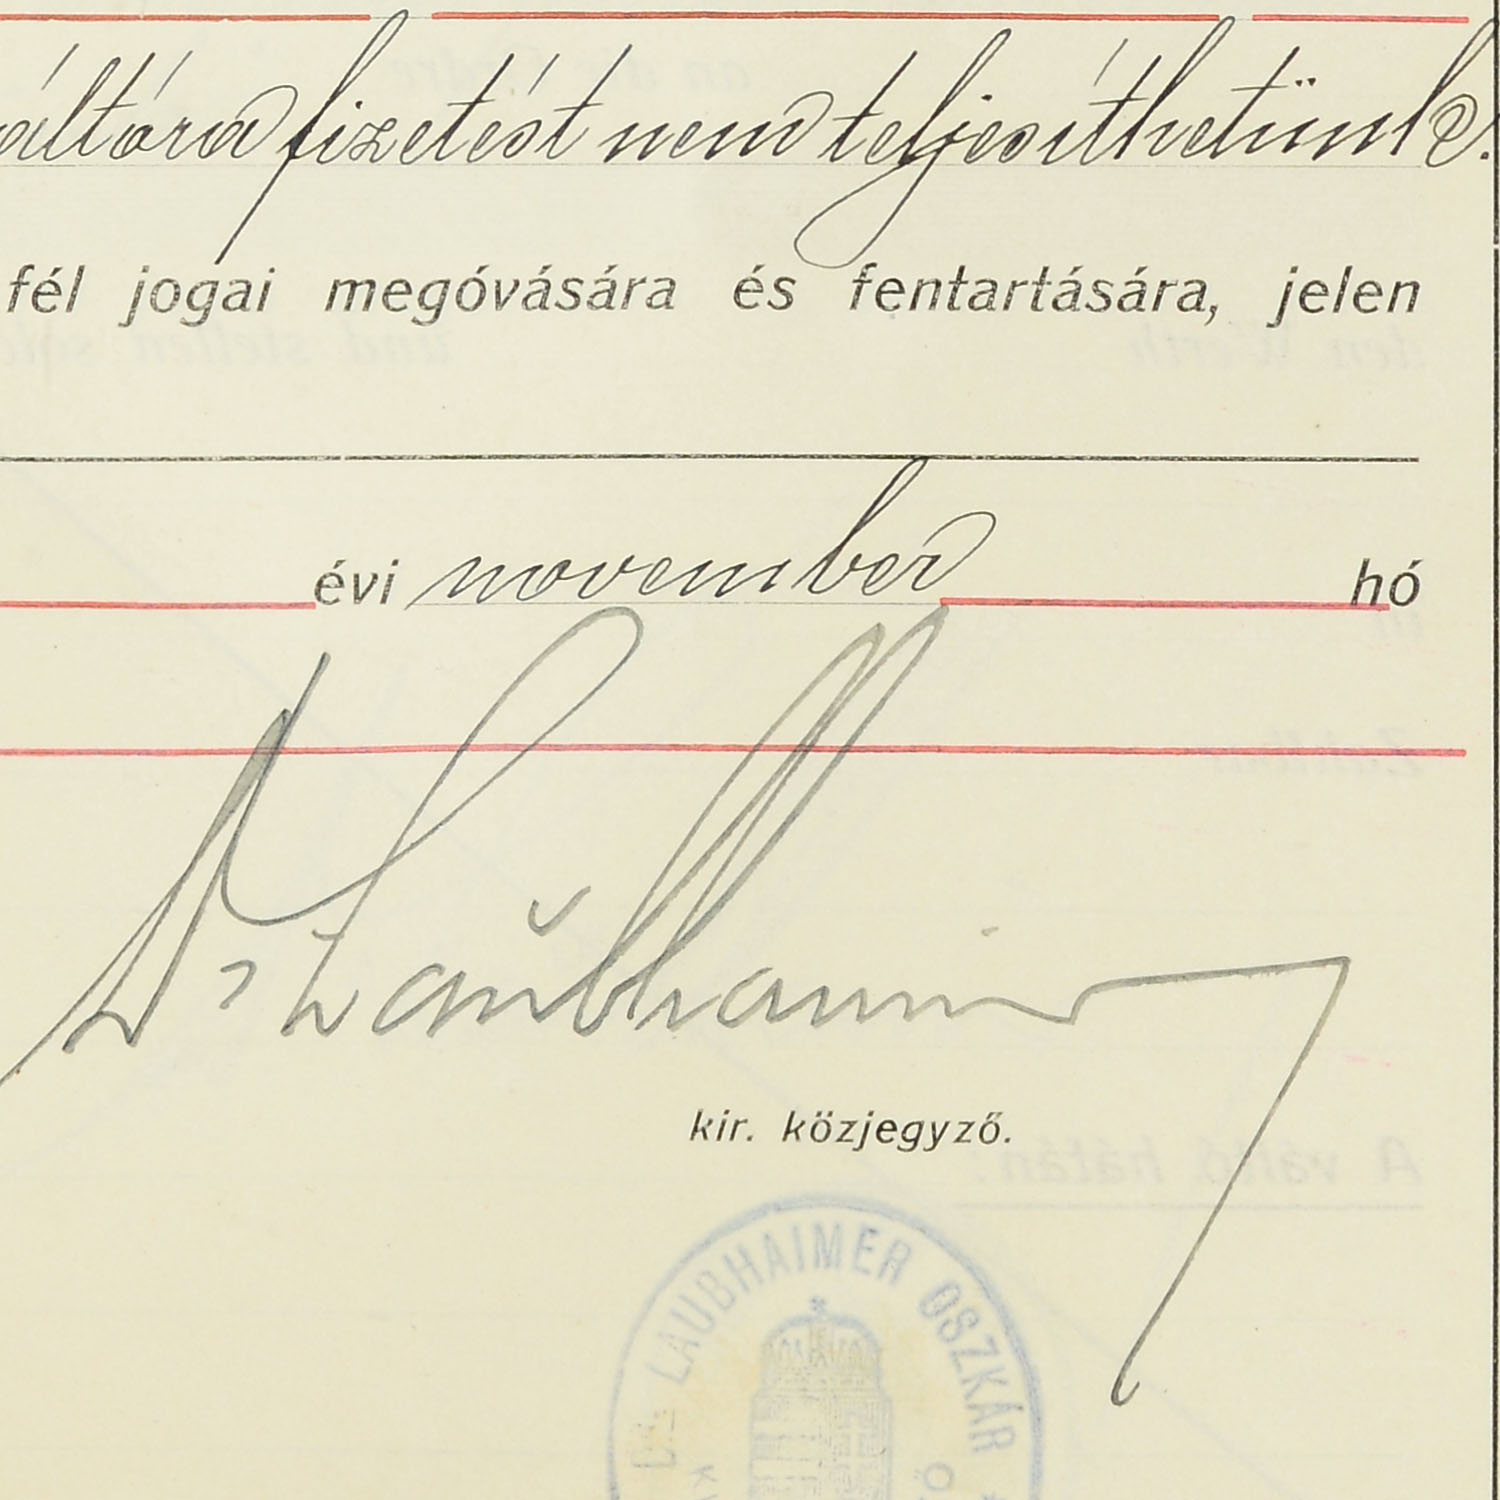 váltóra fizetést nem teljesíthetünk.
fél jogai megóvására és fentartására, jelen
évi november hó
Dr Laubhaimer
kir. közjegyző.
DR LAUBHAIMER OSZKÁR